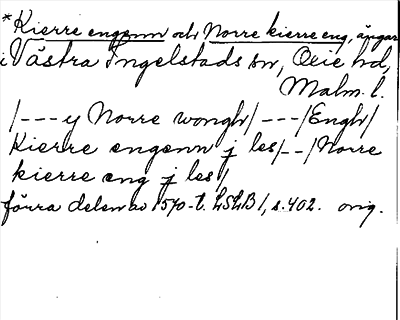 *Kierre engenn och Norre kierre eng, ängar
i Västra Ingelstads sn, Oxie hd,
Malm. l.
/---y Norre wongh/---/Engh/
Kierre engenn j les/--/Norre
kierre eng j les/
förra delen av 1570-t. LSLB 1, s. 402. orig.